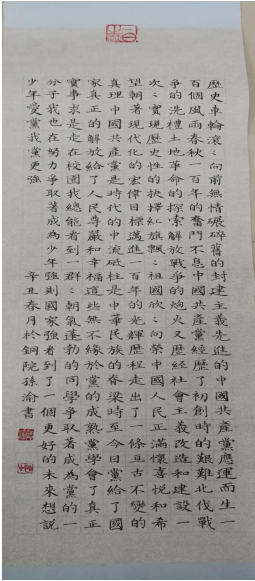 歷史車輪滾滾向前無情碾碎舊的封建主義先進的中國共產黨應運而生一
百個風雨春秋一百年的奮鬥不息中國共產黨經歷了初創時的艱難北伐戰
爭的洗禮土地革命的探索解放戰爭的炮火又歷經社會主義改造和建設一
次次實現歷史性的抉擇紅旗飄飄祖國欣欣向榮中國人民正滿懷喜悅和希
望朝著現代化的宏偉目標邁進一百年的光輝歷程走出了一條亙古不變的
真理中國共產黨是時代的中流砥柱是中華民族的脊梁時至今日黨給了國
家真正的解放給了人民尊嚴和幸福這些無不緣於黨的成熟黨學會了真正
實事求是走在校園我總能看到一群群朝氣蓬勃的同學爭取著成為黨的一
分子我也在努力爭取著成為少年強則國家強看到了一個更好的未來想說
少年愛黨我黨更強
辛丑春月於銅院孫渝書